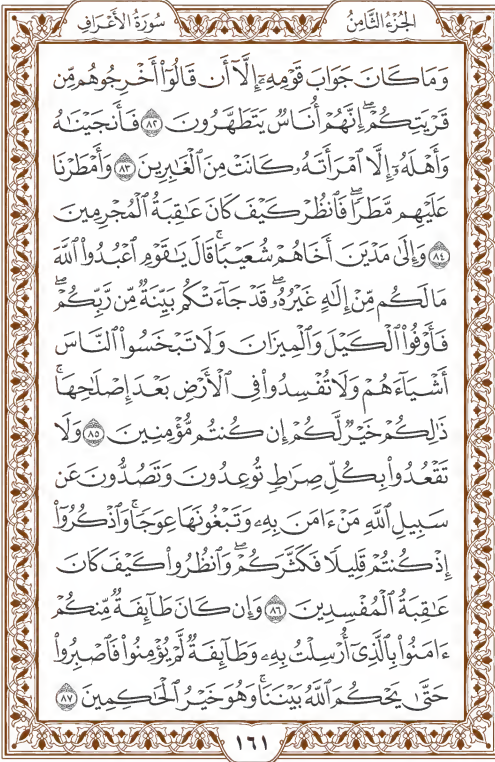 الجزء الثامن
سورة الأعراف
وَمَا كَانَ جَوَابَ قَوْمِهِۦٓ إِلَّآ أَن قَالُوٓا۟ أَخْرِجُوهُم مِّن
قَرْيَتِكُمْ ۖ إِنَّهُمْ أُنَاسٌ يَتَطَهَّرُونَ ٨٢ فَأَنجَيْنَـٰهُ
وَأَهْلَهُۥٓ إِلَّا ٱمْرَأَتَهُۥ كَانَتْ مِنَ ٱلْغَـٰبِرِينَ ٨٣ وَأَمْطَرْنَا
عَلَيْهِم مَّطَرًا ۖ فَٱنظُرْ كَيْفَ كَانَ عَـٰقِبَةُ ٱلْمُجْرِمِينَ
٨٤ وَإِلَىٰ مَدْيَنَ أَخَاهُمْ شُعَيْبًا ۗ قَالَ يَـٰقَوْمِ ٱعْبُدُوا۟ ٱللَّهَ
مَا لَكُم مِّنْ إِلَـٰهٍ غَيْرُهُۥ ۖ قَدْ جَآءَتْكُم بَيِّنَةٌ مِّن رَّبِّكُمْ ۖ
فَأَوْفُوا۟ ٱلْكَيْلَ وَٱلْمِيزَانَ وَلَا تَبْخَسُوا۟ ٱلنَّاسَ
أَشْيَآءَهُمْ وَلَا تُفْسِدُوا۟ فِى ٱلْأَرْضِ بَعْدَ إِصْلَـٰحِهَا ۚ
ذَٰلِكُمْ خَيْرٌ لَّكُمْ إِن كُنتُم مُّؤْمِنِينَ ٨٥ وَلَا
تَقْعُدُوا۟ بِكُلِّ صِرَٰطٍ تُوعِدُونَ وَتَصُدُّونَ عَن
سَبِيلِ ٱللَّهِ مَنْ ءَامَنَ بِهِۦ وَتَبْغُونَهَا عِوَجًا ۚ وَٱذْكُرُوٓا۟
إِذْ كُنتُمْ قَلِيلًا فَكَثَّرَكُمْ ۖ وَٱنظُرُوا۟ كَيْفَ كَانَ
عَـٰقِبَةُ ٱلْمُفْسِدِينَ ٨٦ وَإِن كَانَ طَآئِفَةٌ مِّنكُمْ
ءَامَنُوا۟ بِٱلَّذِىٓ أُرْسِلْتُ بِهِۦ وَطَآئِفَةٌ لَّمْ يُؤْمِنُوا۟ فَٱصْبِرُوا۟
حَتَّىٰ يَحْكُمَ ٱللَّهُ بَيْنَنَا ۚ وَهُوَ خَيْرُ ٱلْحَـٰكِمِينَ ٨٧
١٦١